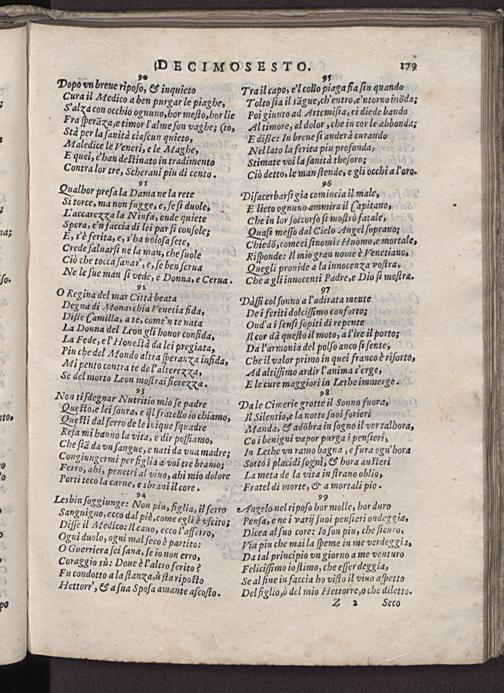 DECIMOSESTO. 179
90
Dopo vn breue riposo, & inquieto
Cura il Medico a ben purgar le piaghe,
S'alza con occhio ognuno, hor mesto, hor lie
Fra speraza, e timor l'alme son vaghe; (to,
Stà per la sanità ciascun quieto,
Maledice le Veneri, e le Maghe,
E quei, c'han destinato in tradimento
Contra lor tre, Scherani piu di cento.
91
Qualhor presa la Dama ne la rete
Si torce, ma non fugge, e, se si duole,
L'accarezza la Ninfa, onde quiete
Spera, e'n faccia di lei par si console;
E, s'è ferita, e, s'ha noiosa sete,
Crede saluarsi ne la man, che suole
Ciò che tocca sanar', e, se ben serua
Ne le sue man si vede, e Donna, e Cerua.
92
O Regina del mar Città beata
Degna di Monarchia Venetia fida,
Disse Camilla, a te, come'n te nata
La Donna del Leon gli honor confida,
La Fede, e l'Honestà da lei pregiata,
Piu che del Mondo altra speranza infida,
Mi pento contra te de l'alterezza,
Se del morto Leon mostrai fierezza.
93
Non ti sdegnar Nutritio mio se padre
Questo, e lei suora, e ql fratello io chiamo,
Questi dal ferro de le inique squadre
Resa mi hanno la vita, e dir possiamo,
Che siā da vn sangue, e nati da vna madre;
Congiungermi per figlia a voi tre bramo;
Ferro, ahi, penetri al viuo, ahi mio dolore
Porti teco la carne, e sbrani il core.
94
Lesbin soggiunge: Non piu, figlia, il ferro
Sanguigno, ecco dal piè, come egli è vscito;
Disse il Medico: Il cauo, ecco l'afferro,
Ogni duolo, ogni mal seco è partito:
O Guerriera sei sana, se io non erro,
Coraggio sù: Doue è l'altro ferito?
Fu condotto a la stanza, ù sta riposto
Hettorr', & a sua Sposa amante ascosto.
95
Tra il capo, e'l collo piaga fia sin quando
Tolto sia il sāgue, ch'entro, e'ntorno inōda;
Poi giunto ad Artemisia, ei diede bando
Al timore, al dolor, che in cor le abbonda;
E disse: In breue si anderà curando
Nel lato la ferita piu profonda,
Stimate voi la sanità thesoro;
Ciò detto, le man stende, e gli occhi a l'oro.
96
Disacerbarsi gia comincia il male,
E lieto ognuno ammira il Capitano,
Che in lor soccorso si mostrò fatale,
Quasi messo dal Cielo Angel soprano;
Chiedō, come ci sinomi: Huomo, e mortale,
Risponde: Il mio gran nome è Venetiano,
Quegli prouide a la innocenza vostra,
Che a gli innocenti Padre, e Dio si mostra.
97
Dassi col sonno a l'adirata mente
De i feriti dolcissimo conforto;
Ond'a i sensi sopiti di repente
Il cor dà questo il moto, a l'ire il porto;
Da l'armonia del polso anco si sente,
Che il valor primo in quei franco è risorto,
Ad altissimo ardir l'anima s'erge,
E le cure maggiori in Lethe immerge.
98
Da le Cimerie grotte il Sonno fuora,
Il Silentio, e la notte suoi forieri
Manda, & adōbra in sogno il ver talhora,
Co i benigni vapor purga i pensieri,
In Lethe vn ramo bagna, e fura ogn'hora
Sotto i placidi sogni, & hora austieri
La meta de la vita in strano oblio,
Fratel di morte, & a mortali pio.
99
Angelo nel riposo hor molle, hor duro
Pensa, e ne i varij suoi pensieri ondeggia,
Dicea al suo core: Io son piu, che sicuro,
Via piu che mai la speme in me verdeggia,
Da tal principio vn giorno a me venturo
Felicissimo io stimo, che esser deggia,
Se al fine in faccia ho visto il viuo aspetto
Del figlio, ò del mio Hettorre, o che diletto.
Z 2 Seco